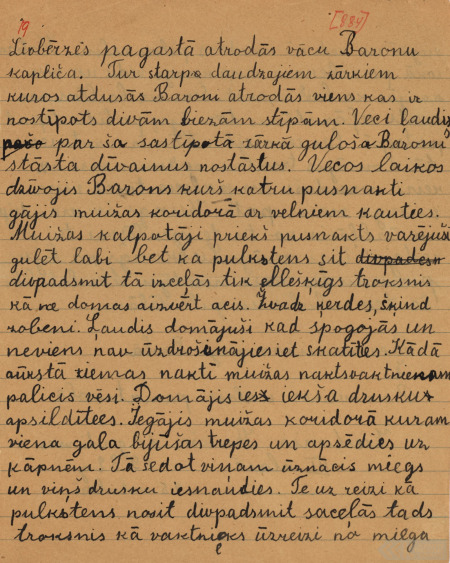 19 [884]
Līvbērzēs pagastā atrodās vācu Baronu
kapliča. Tur starpa daudzajiem zārkiem
kuros atdusās Baroni atrodās viens kas ir
nostīpots divām biezām stīpām. Veci ļaudis
par ša sastīpotā zārkā guļoša Baronu
stāsta dīvainus nostāstus. Vecos laikos
dzīvojis Barons kurš katru pusnakti
gājis muižas koridorā ar velniem kautees.
Muižas kalpotāji priekš pusnakts varējuši
gulēt labi bet ka pulkstens sit divpadesm
divpadsmit tā izceļās tik ellešķīgs troksnis
kā ne domas aizvērt acis. Žvadz ķerdes, šķind
zobeni. Ļaudis domājuši kad spogojās un
neviens nav ūzdrošinājies iet skatītes. Kādā
aūkstā ziemas naktī muižas naktsvaktnienam
palicis vēsi. Domājis iesz iekša drusku
apsildītees. Iegājis muižas koridorā kuram
viena gala bijušas trepes un apsēdies uz
kāpnēm. Tā sēdot viņam ūznācis miegs
un viņš drusku iesnaudies. Te uz reizi kā
pulkstens nosit divpadsmit saceļās tāds
troksnis kā vaktnieks ūzreizi no miega